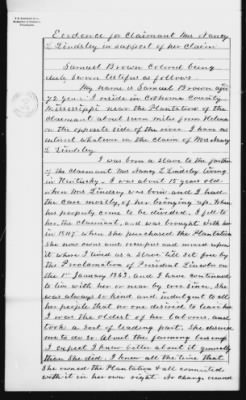 Evidence for Claimant Mrs Nancy
L Lindsley in support of her claim
Samuel Brown Colored being
duly sworn testifies as follows.
My name is Samuel Brown age
72 years. I reside in Cohoma County
Mississippi near the Plantation of the
claimant about seven miles from Helena
on the opposite side of the river. I have no
interest whatever in the claim of Mrs Nancy
L Lindsley
I was born a slave to the father
of the claimant Mrs Nancy L Lindsley living
in Kentucky. I was about 15 years old
when Mrs Lindsley was born and I had
the care mostly, of her bringing up. When
his property come to be divided I fell to
her, the claimant, and was brought with her
in when she purchased the Plantation
She now owns and occupies and moved upon
it where I lived as a Slave till set free by
the Proclamation of President Lincoln on
the 1st January 1863. and I have continued
to live with her or near by ever since. She
was always so kind and indulgent to all
her people that no one desired to leave her
I was the oldest of her laborers and
took a sort of leading part. She desired
me to do so about the farming because
I expect I knew better about it generally
than she did. I knew all the time that
She owned the Plantation & all connected
with it in her own right. No change ensued